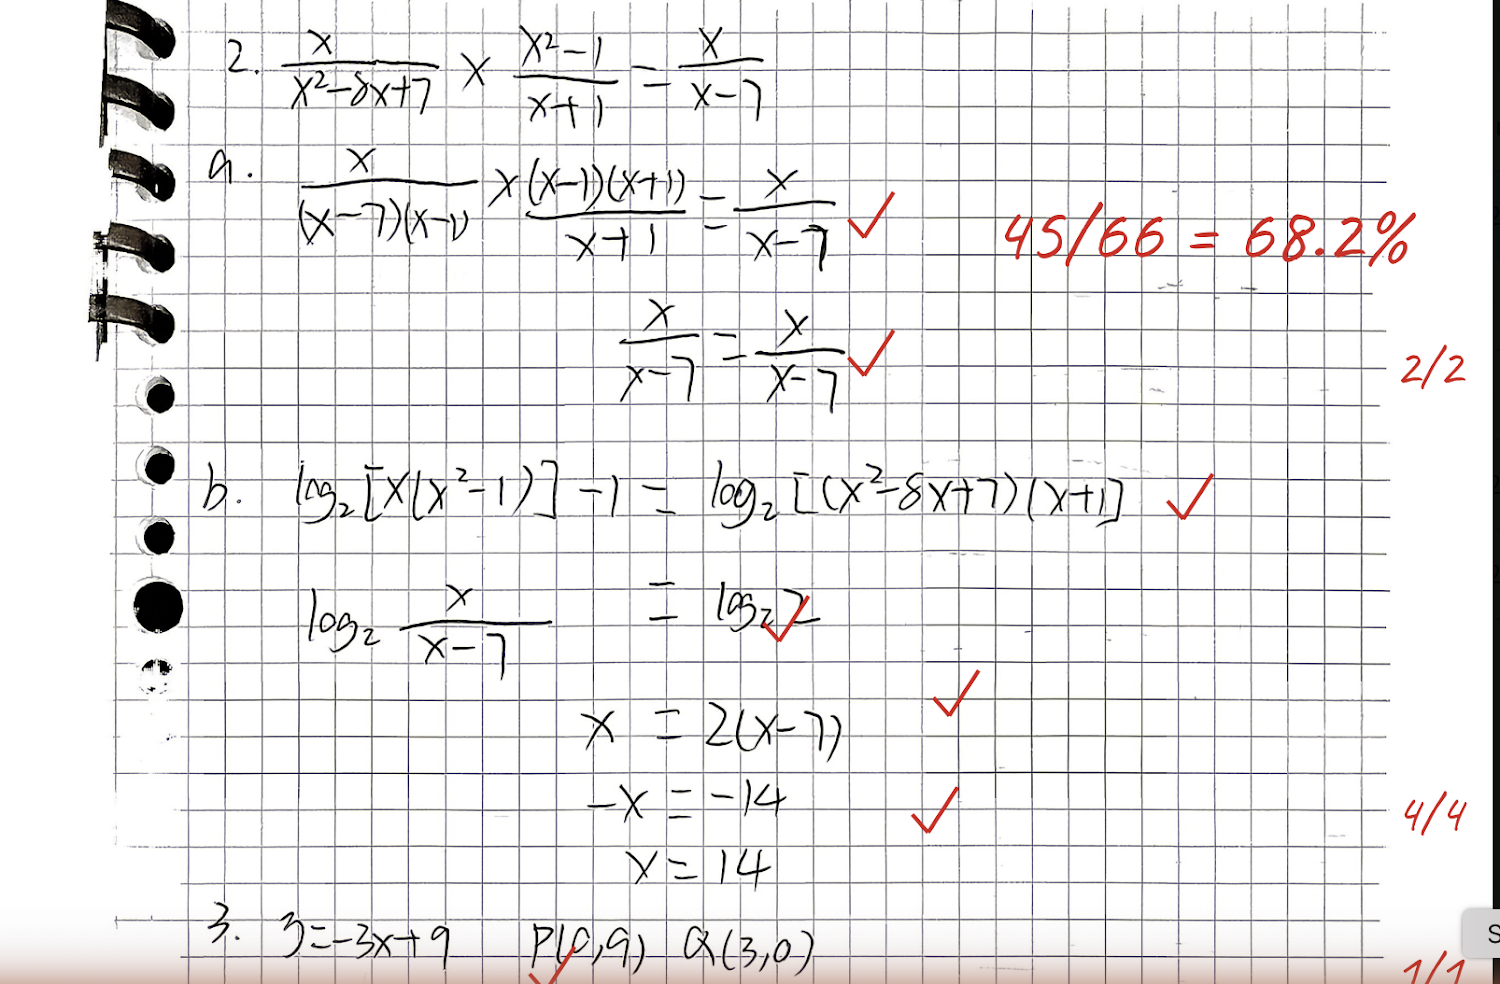 2. x/(x²-8x+7) × (x²-1)/(x+1) = x/(x-7)
a. x/((x-7)(x-1)) × ((x-1)(x+1))/(x+1) = x/(x-7) ✓
45/66 = 68.2%
x/(x-7) = x/(x-7) ✓
2/2
b. log₂[x(x²-1)] -1 = log₂[(x²-8x+7)(x+1] ✓
log₂ x/(x-7) = log₂2 ✓
x = 2(x-7) ✓
-x = -14 ✓
4/4
x = 14
3. y=-3x+9 P(0,9) Q(3,0) ✓
1/1
S